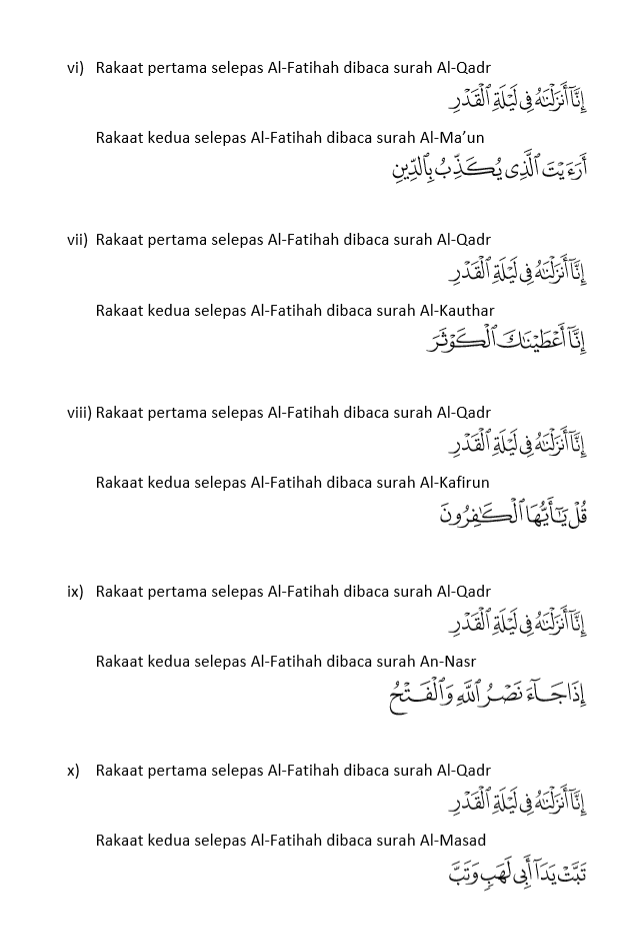 vi) Rakaat pertama selepas Al-Fatihah dibaca surah Al-Qadr
إِنَّآ أَنزَلْنَٰهُ فِى لَيْلَةِ ٱلْقَدْرِ
Rakaat kedua selepas Al-Fatihah dibaca surah Al-Ma’un
أَرَءَيْتَ ٱلَّذِى يُكَذِّبُ بِٱلدِّينِ
vii) Rakaat pertama selepas Al-Fatihah dibaca surah Al-Qadr
إِنَّآ أَنزَلْنَٰهُ فِى لَيْلَةِ ٱلْقَدْرِ
Rakaat kedua selepas Al-Fatihah dibaca surah Al-Kauthar
إِنَّآ أَعْطَيْنَٰكَ ٱلْكَوْثَرَ
viii) Rakaat pertama selepas Al-Fatihah dibaca surah Al-Qadr
إِنَّآ أَنزَلْنَٰهُ فِى لَيْلَةِ ٱلْقَدْرِ
Rakaat kedua selepas Al-Fatihah dibaca surah Al-Kafirun
قُلْ يَٰٓأَيُّهَا ٱلْكَٰفِرُونَ
ix) Rakaat pertama selepas Al-Fatihah dibaca surah Al-Qadr
إِنَّآ أَنزَلْنَٰهُ فِى لَيْلَةِ ٱلْقَدْرِ
Rakaat kedua selepas Al-Fatihah dibaca surah An-Nasr
إِذَا جَآءَ نَصْرُ ٱللَّهِ وَٱلْفَتْحُ
x) Rakaat pertama selepas Al-Fatihah dibaca surah Al-Qadr
إِنَّآ أَنزَلْنَٰهُ فِى لَيْلَةِ ٱلْقَدْرِ
Rakaat kedua selepas Al-Fatihah dibaca surah Al-Masad
تَبَّتْ يَدَآ أَبِى لَهَبٍ وَتَبَّ